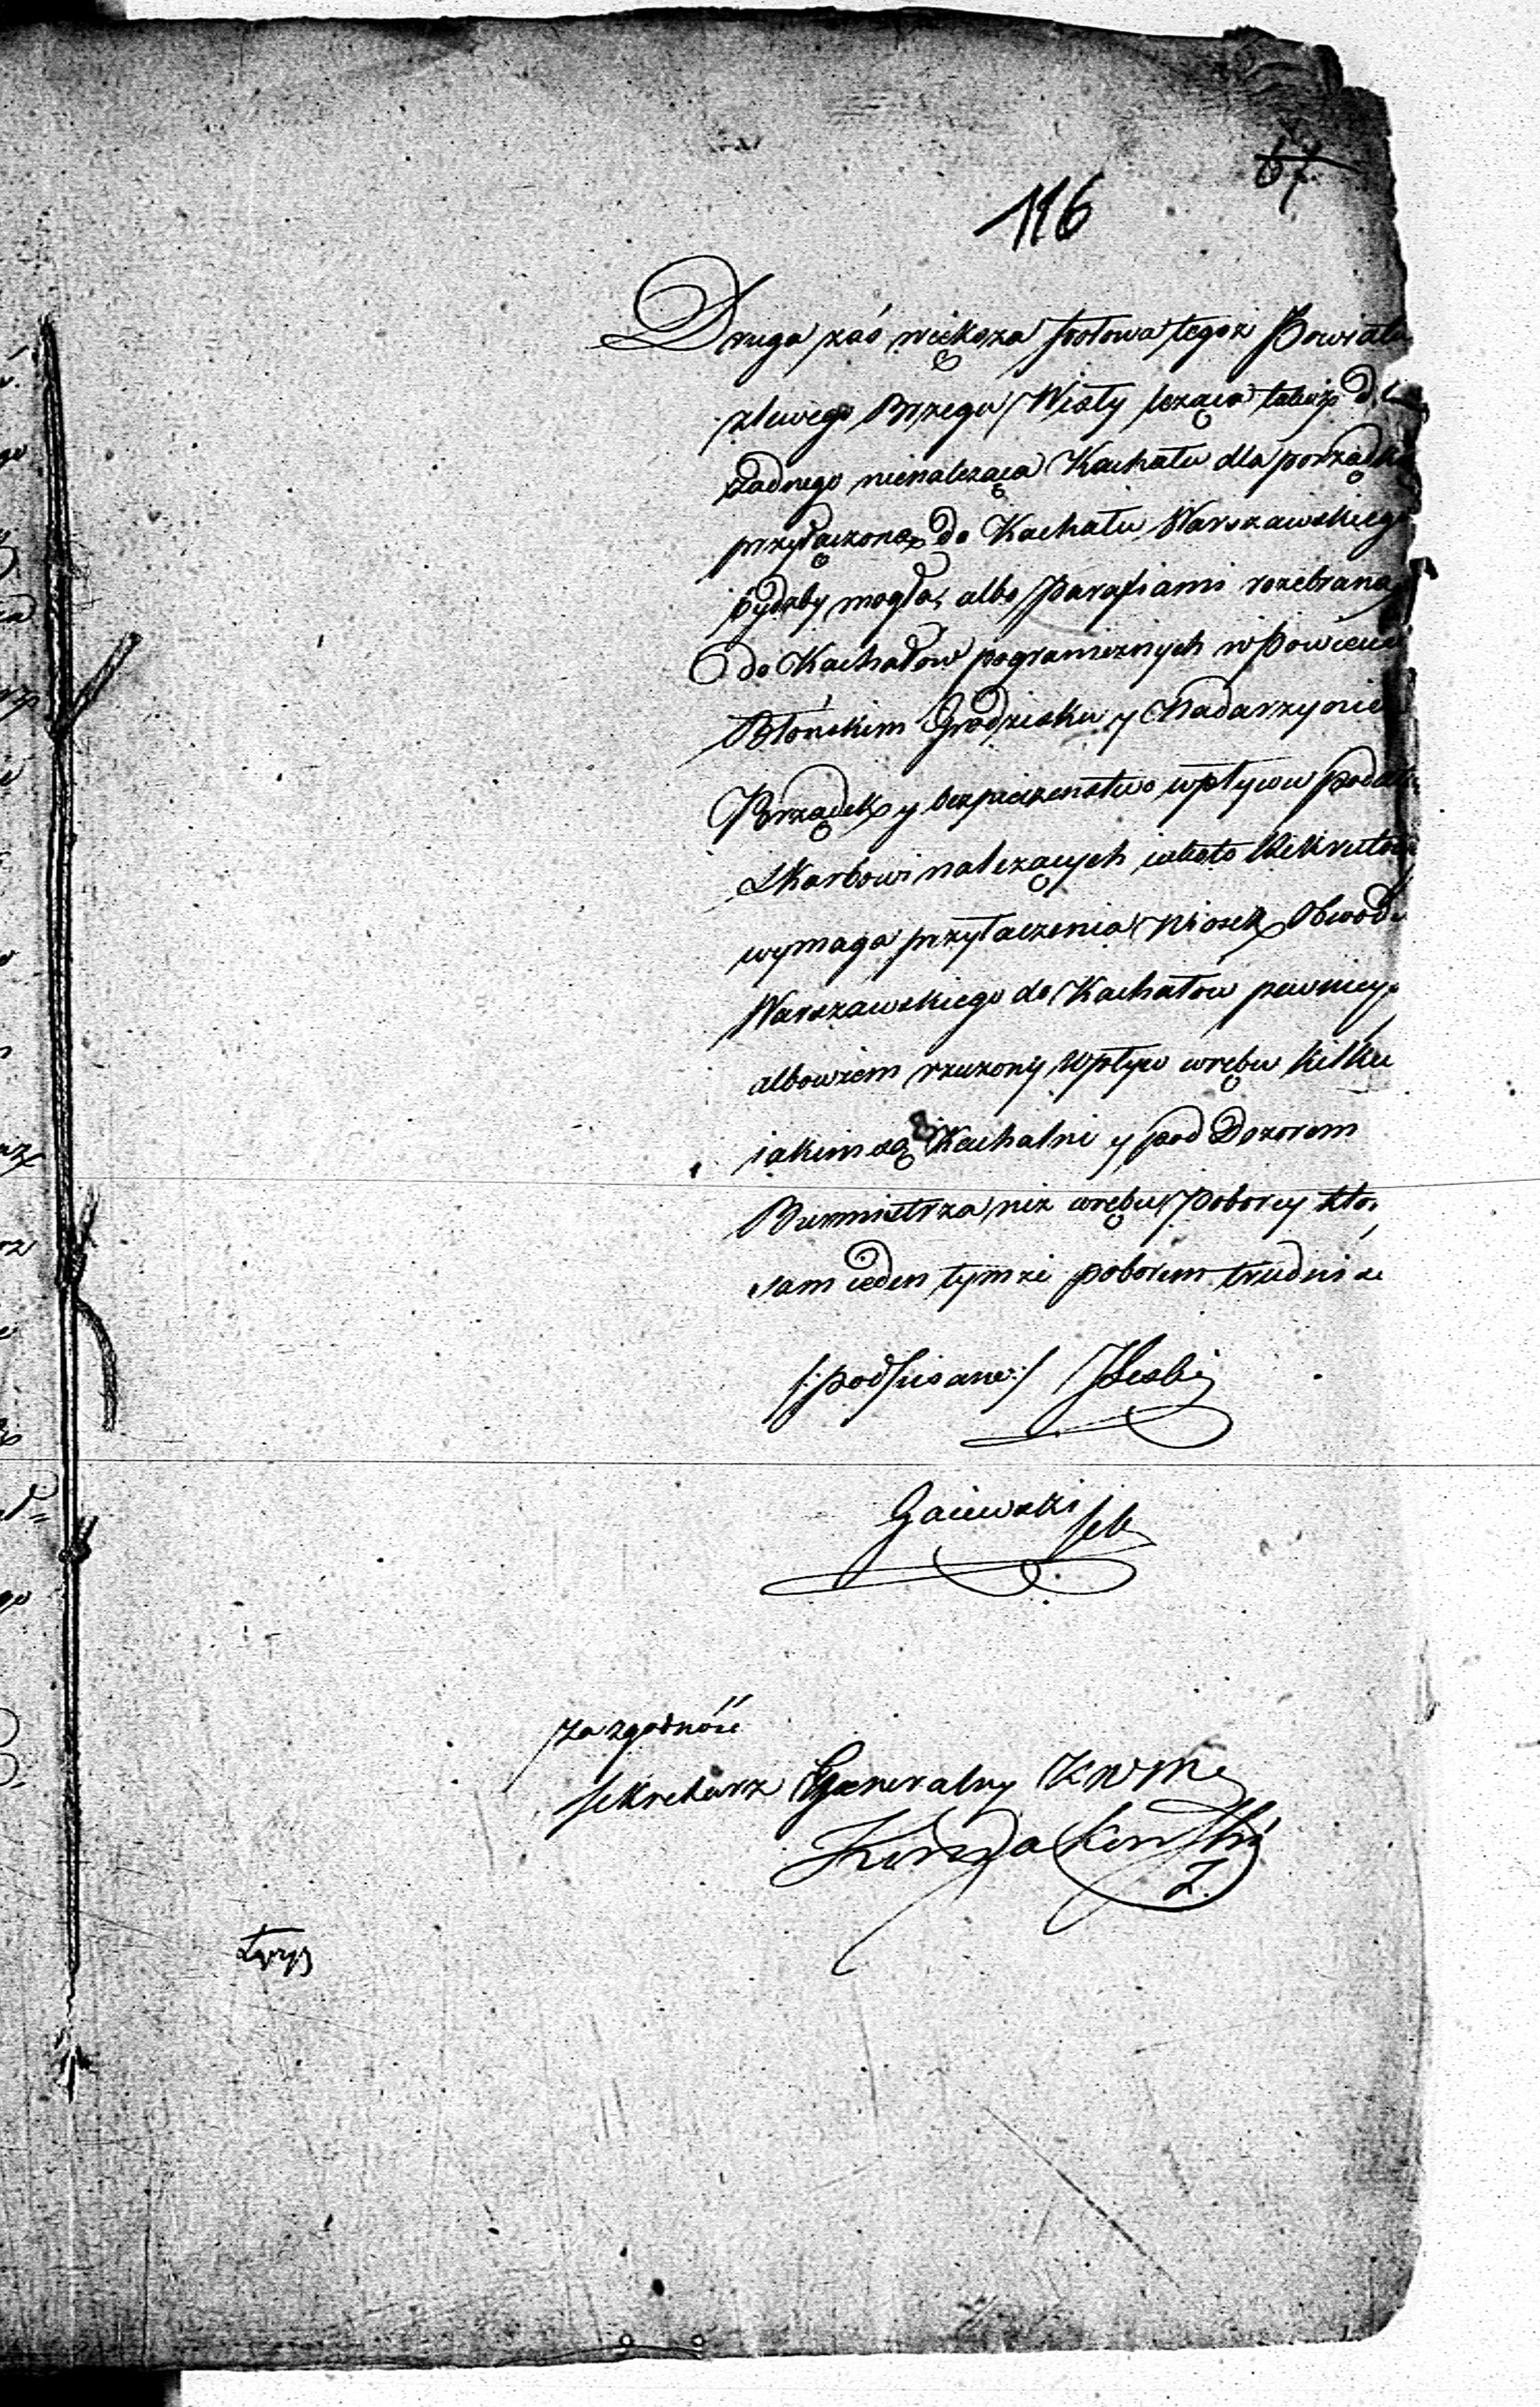 67
116
Druga zaś większa połowa tegoż Powiatu
z lewego Brzegu Wisły leżąca także do
żadnego nienależąca Kachału dla porządku
przyłączona do Kachału Warszawskiego
bydźby mogła, albo Parafiami rozebrana
do Kachałow pogranicznych w Powiecie
Błońskim Grodzisku y Nadarzynie
Porządek y bezpieczenstwo wpływu podatk
Skarbowi należących iakoto Rekrutow
wymaga przyłaczenia Wiosek Obwodu
Warszawskiego do Kachałow
albowiem rzeczony Wpływ w ręku kilku
iakiemi są Kachalni y pod Dozorem
Burmistrza niż w ręku Poborcy któr
sam ieden tymże poborem trudni się
/:podpisano:/
Gaiewski Sek
Za zgodność
Sekretarz Generalny KWM